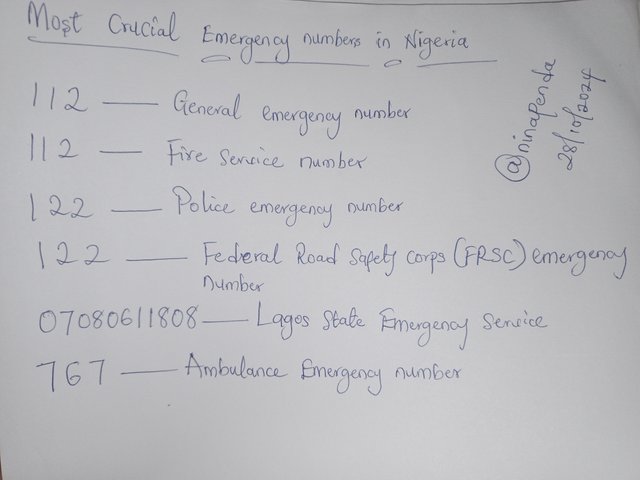 Most Crucial Emergency numbers in Nigeria
112 — General emergency number
112 — Fire Service number
122 — Police emergency number
122 — Federal Road Safety corps (FRSC) emergency
number
07080611808 — Lagos State Emergency Service
767 — Ambulance Emergency number
@ninapenda
28/10/2024